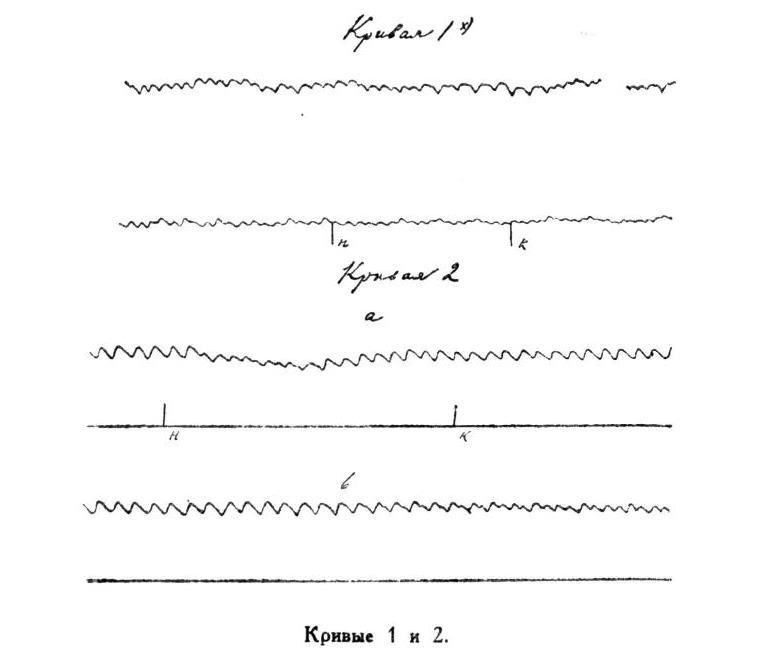 Кривая 1 х)
н к
Кривая 2
а
н к
б
Кривые 1 и 2.